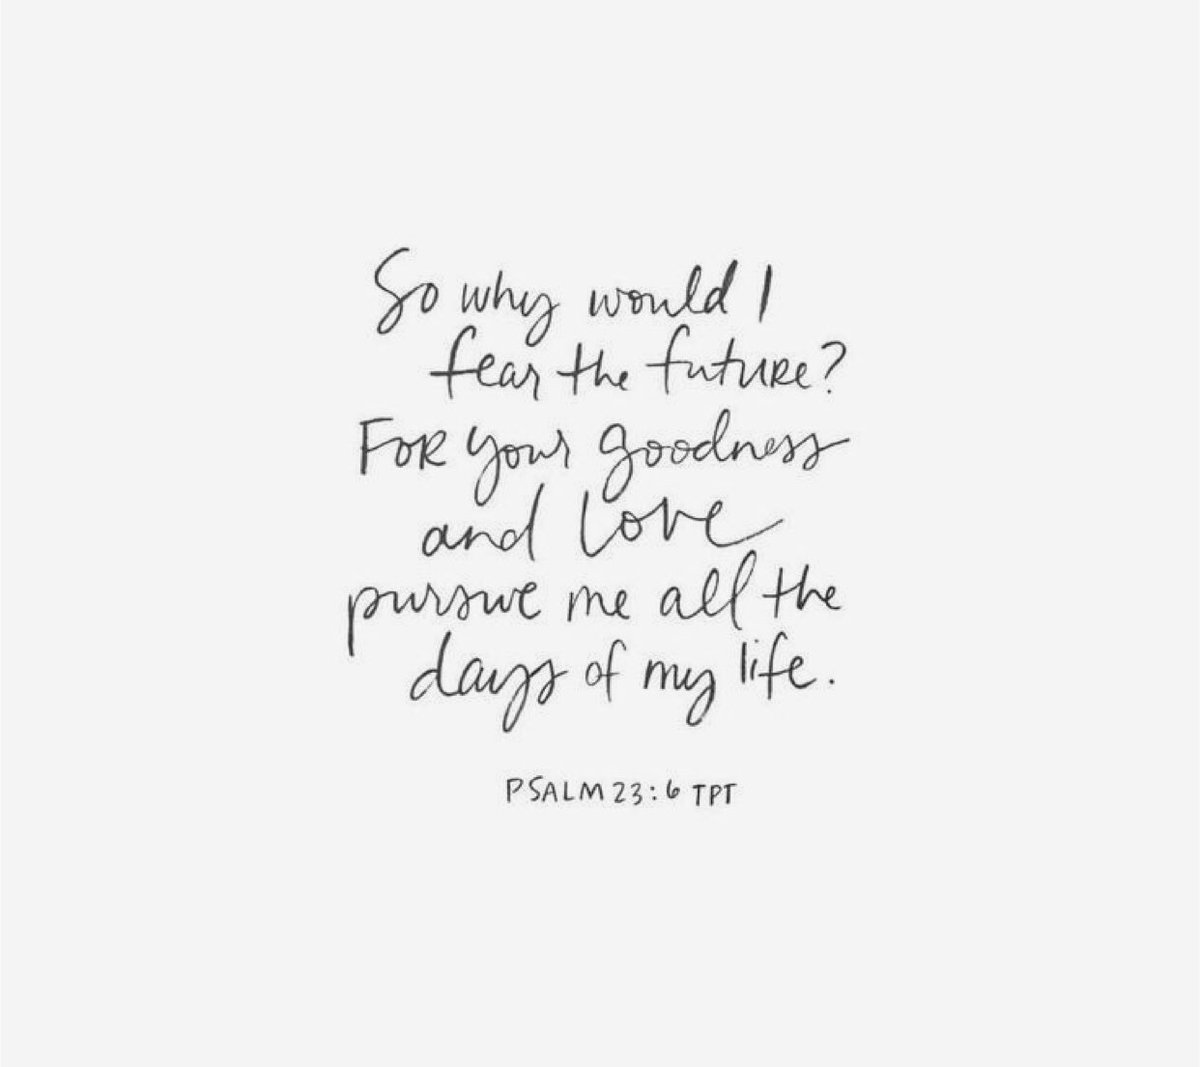 So why would I
fear the future?
FOR your goodness
and love
pursue me all the
days of my life.
PSALM 23:6 TPT